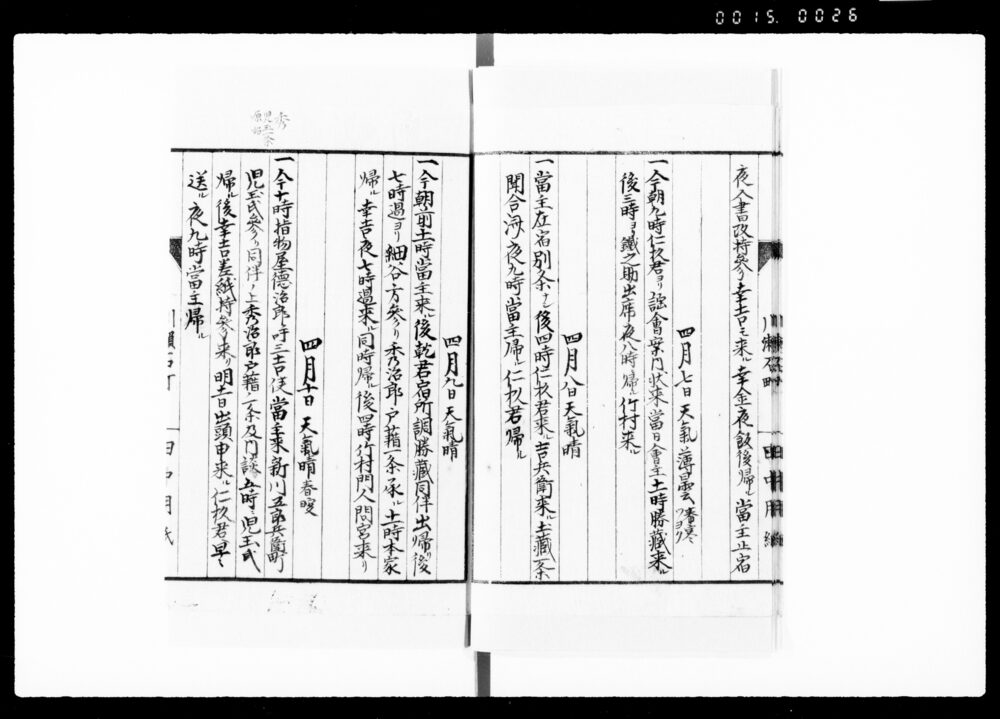 0015. 0026
夜入書改持參幸吉モ来ル幸金夜飯後帰ル當主止宿
四月七日天氣薄雲春寒ツヨク
一今朝九時仁杦君ヨリ諮會案内状来當日會主土時勝藏来ル
後三時ヨリ鐵之助出席夜八時帰ル竹村来ル
四月八日天氣晴
一當主在宿別条ナシ後四時仁杦君来ル吉兵衛来ル土藏一条
聞合ル夜九時當主帰ル仁杦君帰ル
四月九日天氣晴
一今朝前土時當主来ル後乾君宿所調勝藏同伴出帰リ後
七時過ヨリ細谷方參リ秀治郎戸藉一条承ル土時本家
帰ル幸吉夜七時過来ル同時帰ル後四時竹村門人間宮来リ
四月十日天氣晴春暖
一今十時指物屋德治郎ヲ呼三吉使當主来新川五郎兵衛町
児玉氏參リ同伴ノ上秀治郎戸藉一条及門談五時児玉氏
帰ル後幸吉差紙持參来リ明土日出頭申来ル仁杦君早々
送ル夜九時當主帰ル
秀
児玉条